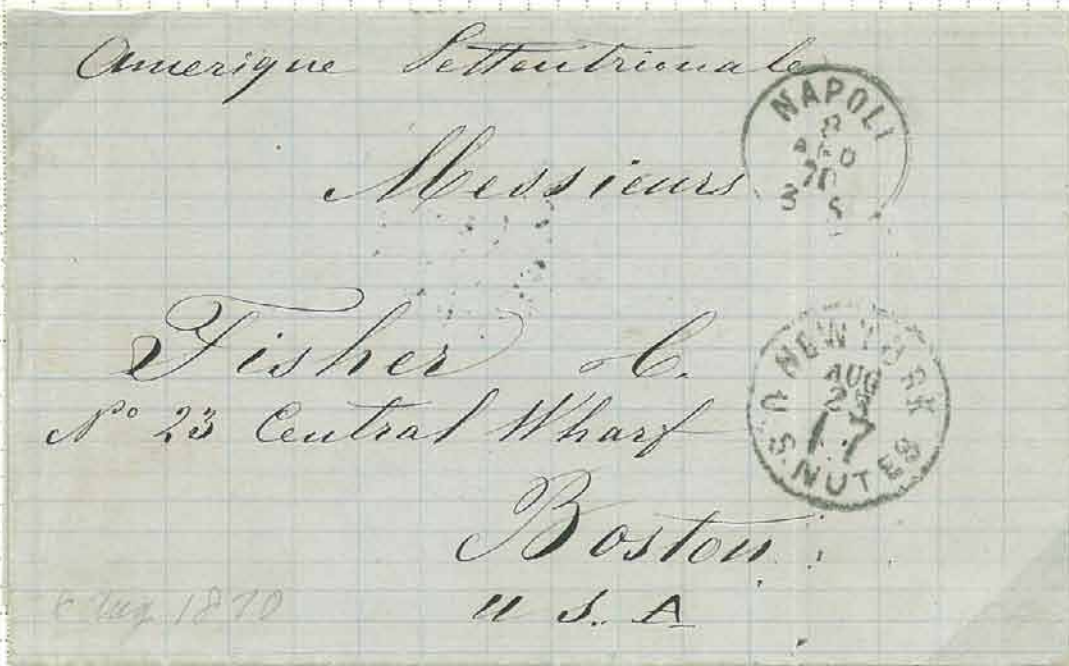 Amerique Settentrionale
NAPOLI
8
AGO
70
3 S
Messieurs
Fisher C.
NEW YORK
AUG
17
U.S. NOTES
No 23 Central Wharf
Boston
U S. A
Aug 1870